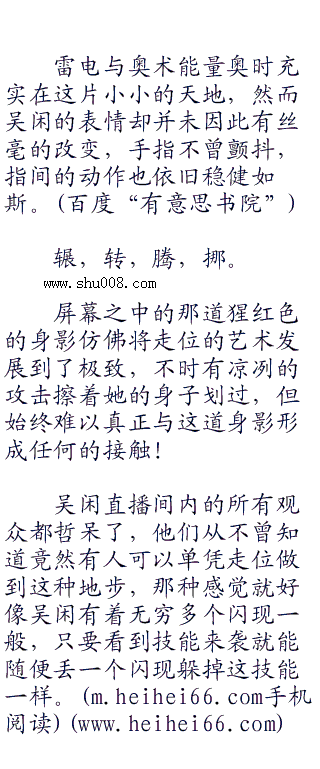 雷电与奥术能量奥时充
实在这片小小的天地，然而
吴闲的表情却并未因此有丝
毫的改变，手指不曾颤抖，
指间的动作也依旧稳健如
斯。(百度“有意思书院”)
辗，转，腾，挪。
www.shu008.com
屏幕之中的那道猩红色
的身影仿佛将走位的艺术发
展到了极致，不时有凉冽的
攻击擦着她的身子划过，但
始终难以真正与这道身影形
成任何的接触！
吴闲直播间内的所有观
众都哲呆了，他们从不曾知
道竟然有人可以单凭走位做
到这种地步，那种感觉就好
像吴闲有着无穷多个闪现一
般，只要看到技能来袭就能
随便丢一个闪现躲掉这技能
一样。(m.heihei66.com手机
阅读)(www.heihei66.com)